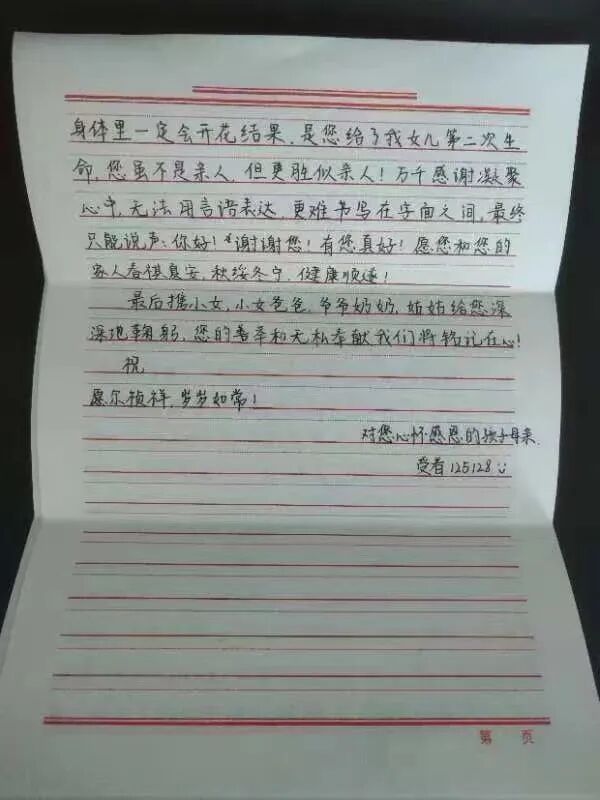 身体里一定会开花结果，是您给了我女儿第二次生
命，您虽不是亲人，但更胜似亲人！万千感谢凝聚
心中，无法用言语表达，更难书写在字面之间，最终
只能说声：你好！谢谢您！有您真好！愿您和您的
家人春祺夏安，秋绥冬宁，健康顺遂！
最后携小女，小女爸爸，爷爷奶奶，姑姑给您深
深地鞠躬，您的善举和无私奉献我们将铭记在心！
祝
愿尔祯祥，岁岁如常！
对您心怀感恩的孩子母亲
受者125128
第 页